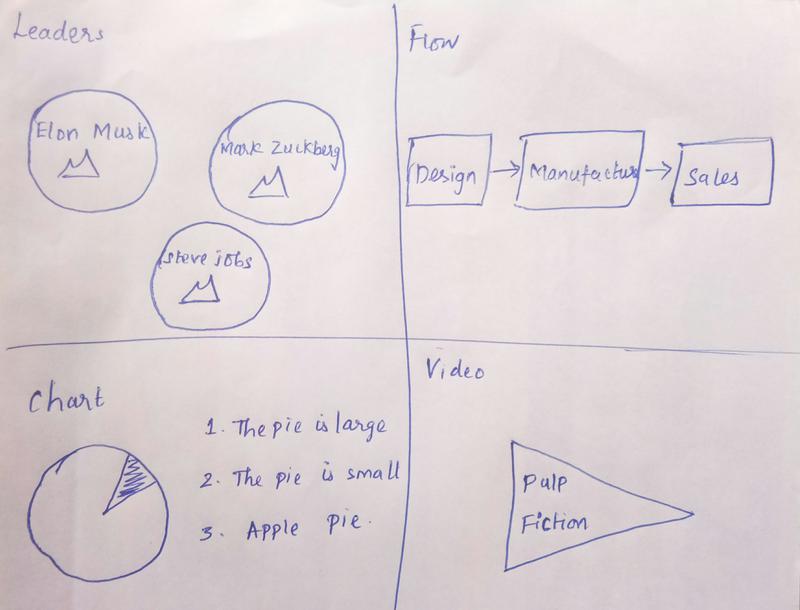 Leaders
Elon Musk
Mark Zuckberg
Steve jobs
Flow
Design
Manufactur
Sales
Chart
1. The pie is large
2. The pie is small
3. Apple pie.
Video
Pulp
Fiction